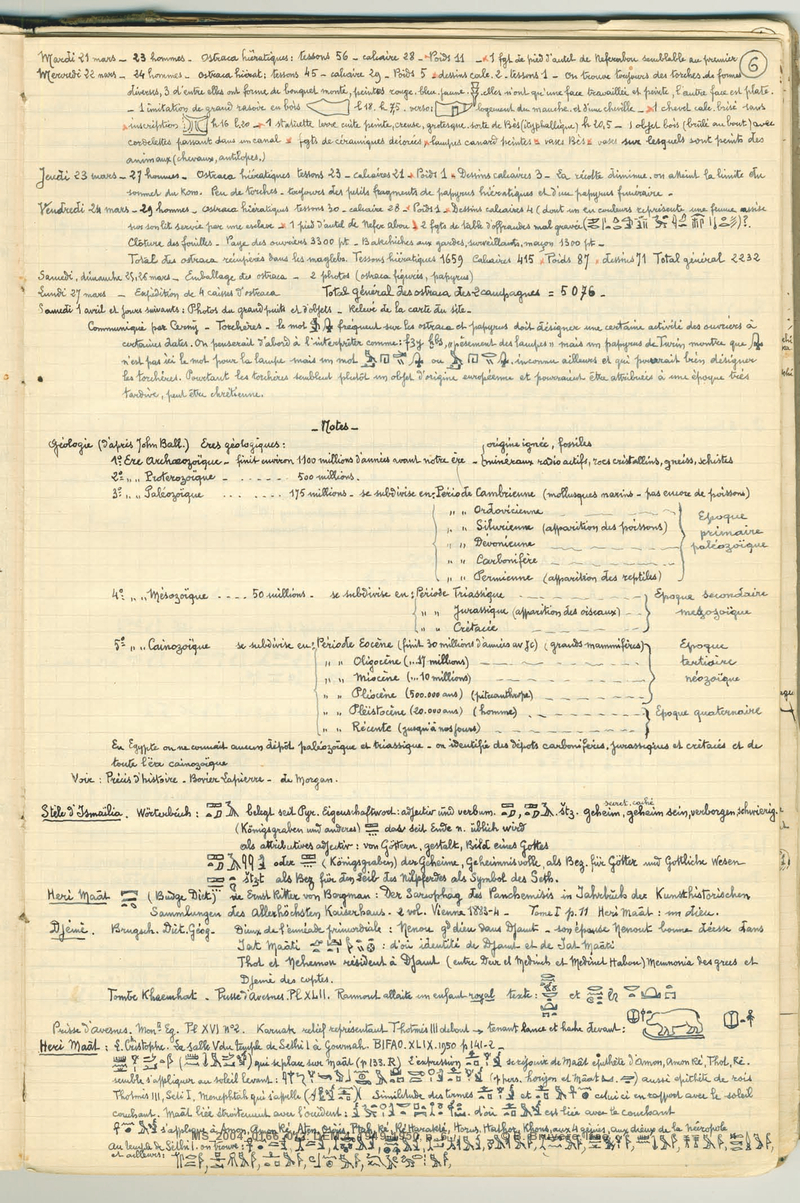 6
Mardi 21 mars – 23 hommes – Ostraca hiératiques : tessons 56 – calcaire 28 – Poids 11 – x 1 fgt de pied d'autel de Neferabou semblable au premier
Mercredi 22 mars – 24 hommes – Ostraca hiérat : tessons 45 – calcaire 29 – Poids 5 x dessins calc. 2 – tessons 1 – On trouve toujours des torches de formes
diverses, 3 d'entre elles ont forme de bouquet monté, peintes rouge, bleu, jaune, elles n'ont qu'une face travaillée et peinte, l'autre face est plate.
– 1 imitation de grand rasoir en bois h 18. l. 75 – verso : logement du manche et d'une cheville – x 1 chevet calc. brisé sans
x inscription h 16 l 20 – x 1 statuette terre cuite peinte, creuse, grotesque sorte de Bès (ityphallique) h 20,5 – 1 objet bois (brûlé au bout) avec
cordelettes passant dans un canal x fgts de céramiques décorées x lampes canard peintes x vases Bès x vases sur lesquels sont peints des
animaux (chevaux, antilopes,)
Jeudi 23 mars – 27 hommes – Ostraca hiératiques tessons 23 – calcaires 21 x Poids 1 x Dessins calcaires 3 – La récolte diminue. on atteint la limite du
sommet du Kom. Peu de torches – toujours des petits fragments de papyrus hiératiques et d'un papyrus funéraire –
Vendredi 24 mars – 29 hommes – Ostraca hiératiques tessons 30 – calcaire 28 – Poids 1 x Dessins calcaires 4 (dont un en couleurs représente une femme assise
sur son lit servie par une esclave x 1 pied d'autel de Nefer abou x 2 fgts de table d'offrandes mal gravée ?.
Clôture des fouilles – Paye des ouvriers 3300 pt – Bakchiches aux gardes, surveillants, maçon 1300 pt –
Total des ostraca récupérés dans les maglebs. Tessons hiératiques 1659 Calcaires 415 x Poids 87 x dessins 71 Total général 2232
Samedi, dimanche 25, 26 mars – Emballage des ostraca – 2 photos (ostraca figurés, papyrus)
Lundi 27 mars – Expédition de 4 caisses d'ostraca Total général des ostraca des 2 campagnes = 5076 –
Samedi 1 avril et jours suivants : Photos du grand puits et d'objets – Relevé de la carte du site –
Communiqué par Cerny – Torchères – le mot fréquent sur les ostraca et papyrus doit désigner une certaine activité des ouvriers à
certaines dates. On penserait d'abord à l'interpréter comme : "paiement des lampes" mais un papyrus de Turin montre que
n'est pas ici le mot pour la lampe mais un mot ou inconnu ailleurs et qui pourrait bien désigner
les torchères. Pourtant les torchères semblent plutôt un objet d'origine européenne et pourraient être attribuées à une époque très
tardive, peut être chrétienne.
– Notes –
Géologie (D'après John Ball.) Eres géologiques : origine ignée, fossiles
1° Ere Archæozoïque – finit environ 1100 millions d'années avant notre ère – minéraux radio actifs, rocs cristallins, gneiss, schistes
2° " " Proterozoïque – ..... 500 millions.
3° " " Paléozoïque ..... 175 millions – se subdivise en : Période Cambrienne (mollusques marins – pas encore de poissons)
" " Ordovicienne
" " Silurienne (apparition des poissons)
" " Dévonienne
" " Carbonifère
" " Permienne (apparition des reptiles)
Epoque
primaire
paléozoïque
4° " " Mésozoïque .... 50 millions – se subdivise en : Période Triassique
" " Jurassique (apparition des oiseaux)
" " Crétacée
Epoque secondaire
mésozoïque
5° " " Caïnozoïque se subdivise en : Période Eocène (finit 30 millions d'années av JC) (grands mammifères)
" " Oligocène (... 17 millions)
" " Miocène (... 10 millions)
" " Pliocène (500.000 ans) (pitécanthrope)
Epoque
tertiaire
néozoïque
" " Pleistocène (20.000 ans) (homme)
" " Récente (jusqu'à nos jours)
Epoque quaternaire
En Egypte on ne connait aucun dépôt paléozoïque et triassique – on identifie des dépots carbonifères, jurassiques et crétacés et de
toute l'ère caïnozoïque
Voir : Précis d'histoire – Bovier Lapierre – de Morgan.
Stèle d'Ismaïlia. Wörterbuch : belegt seit Pyr. Eigenschaftwort : adjectiv und verbum. , štз. geheim, geheim sein, verborgen, schwierig.
secret, caché
(Königsgraben und anderes) das seit Ende n. üblich wird
als attributives adjectiv : von Göttern, gestalt, Bild eines Gottes
oder (Königsgraben) der Geheime, Geheimnisvolle, als Bez. für Götter und Gottliche Wesen
štзt als Bez für den Leib des Nilpferdes als Symbol des Seth.
Heri Maât (Budge Dict) Ernst Ritter von Bergman : Der Sarcophag des Panehemisis in Jahrbuch der Kunsthistorischen
Sammlungen des Allerhöchsten Kaiserhaus. 2 vol. Vienna 1883-4 – Tome I p. 11 Heri Maât : un dieu.
Djêmê. Brugsch. Dict. Géog – Dieux de l'ennéade primordiale : Nenou gd dieu dans Djamt – son épouse Nenout bonne déesse dans
Iat Maâti : d'où identité de Djamt et de Iat Maâti
Thot et Nehemon résident à Djamt (entre Deir el Medineh et Medinet Habou) Memnonia des grecs et
Djemé des coptes.
Tombe Khaemhat – Prisse d'avesnes. Pl. XLII. Rannout allaite un enfant royal texte : et
Prisse d'avesnes. Mon.ts Eg. Pl XVI n°2. Karnak relief représentant Thotmès III debout → tenant lance et hache devant :
Heri Maât : L. Christophe. La salle V du temple de Sethi I à Gournah. BIFAO. XLIX. 1950 p 141-2 –
qui se place sur Maât (p 133. R.) L'expression se réjouir de Maât épithète d'Amon, Amon Ré, Thot, Ré.
semble s'appliquer au soleil levant : aussi épithète de rois
Thotmès III, Seti I, Menephtah qui s'appelle Similitude des termes et celui ci en rapport avec le soleil
couchant. Maât liée étroitement avec l'occident : d'où est liée avec le couchant
s'applique à Amon, Amon Ré, Aton, Osiris, Ptah, Ré, Ré Harakhti, Horus, Hathor, Khons, aux 4 génies, aux dieux de la nécropole
au temple de Séthi I. on trouve :
et ailleurs :